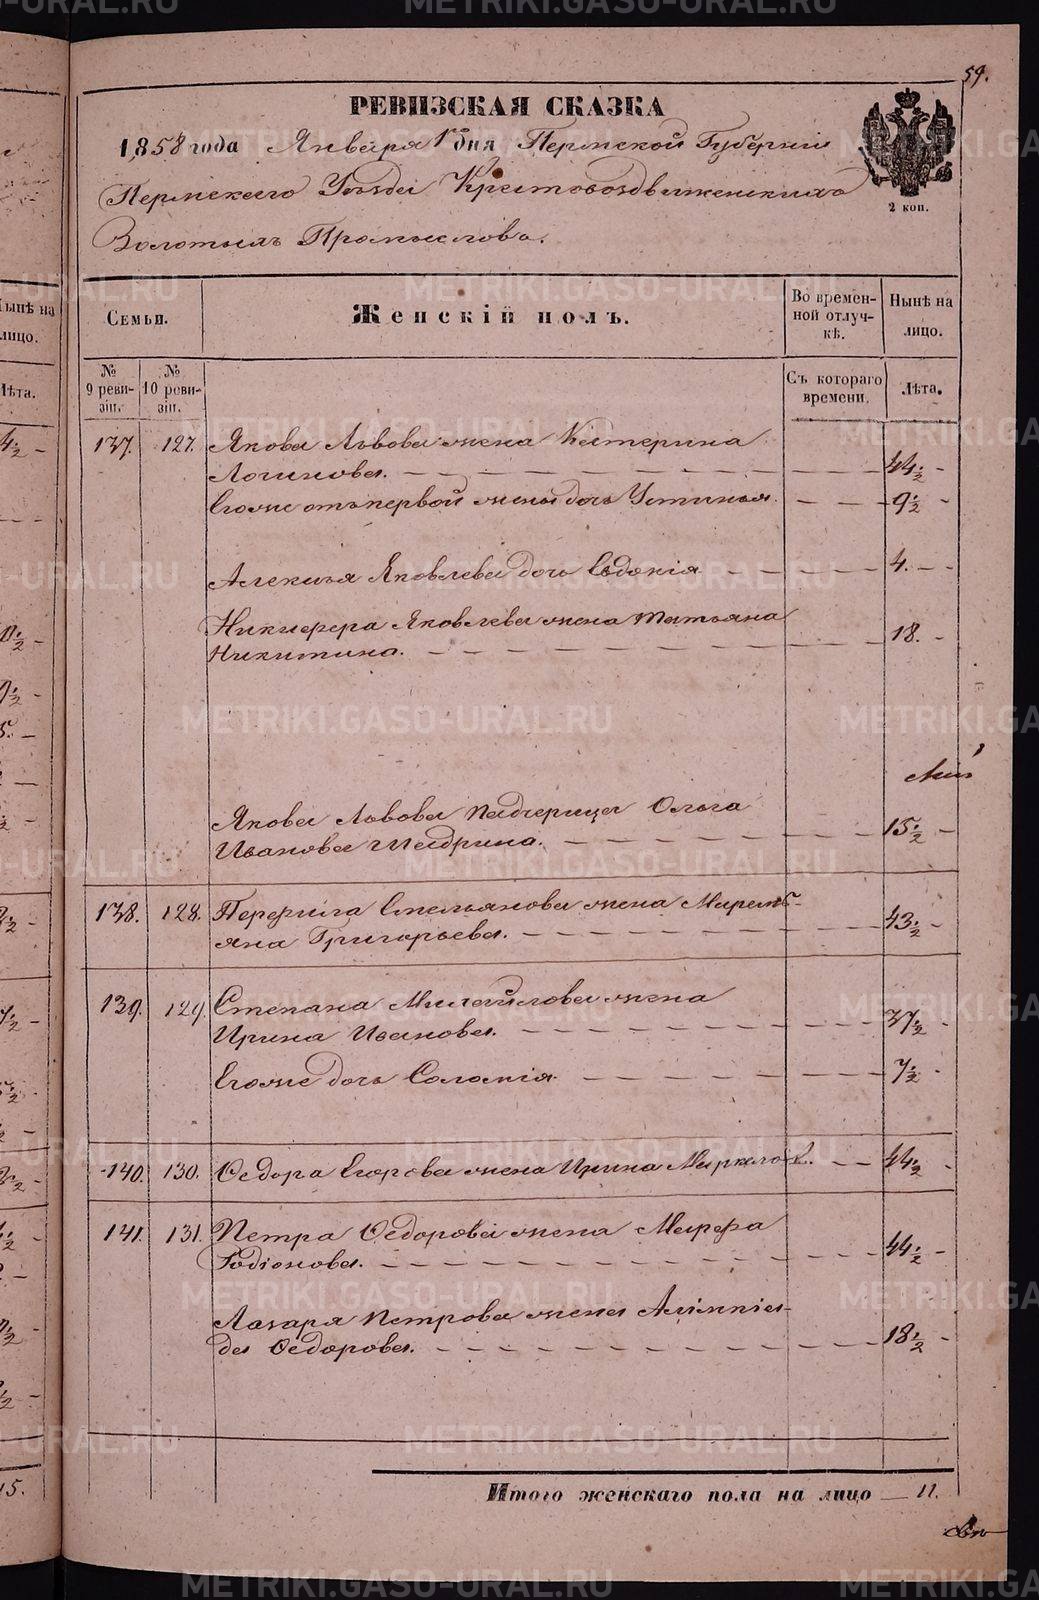 59.
РЕВИЗСКАЯ СКАЗКА
1858 года Января 1 дня Пермской Губерніи
Пермскаго Уѣзда Крестовоздвиженскихъ
Золотыхъ Промысловъ.
2 коп.
Семьи.
Женскій полъ.
Во времен-
ной отлуч-
кѣ.
Нынѣ на
лицо.
№
9 реви-
зіи.
№
10 реви-
зіи.
Съ котораго
времени.
Лѣта.
137. 127. Якова Львова жена Катерина
Логинова. 44 1/2
Его же отъ первой жены дочь Устинья. 9 1/2
Алексѣя Яковлева дочь Евдокія 4.
Никифора Яковлева жена Татьяна
Никитина. 18.
Якова Львова падчерица Ольга
Иванова Шадрина. 15 1/2
138. 128. Перфила Емельянова жена Маремь-
яна Григорьева. 43 1/2
139. 129. Степана Михайлова жена
Ирина Иванова. 37 1/2
Его же дочь Соломія 7 1/2
140. 130. Ѳедора Егорова жена Ирина Маркелов. 44 1/2
141. 131. Петра Ѳедорова жена Марфа
Родіонова. 44 1/2
Лазаря Петрова жена Алимпіа-
да Ѳедорова. 18 1/2
Итого женскаго пола на лицо 11.
METRIKI.GASO-URAL.RU